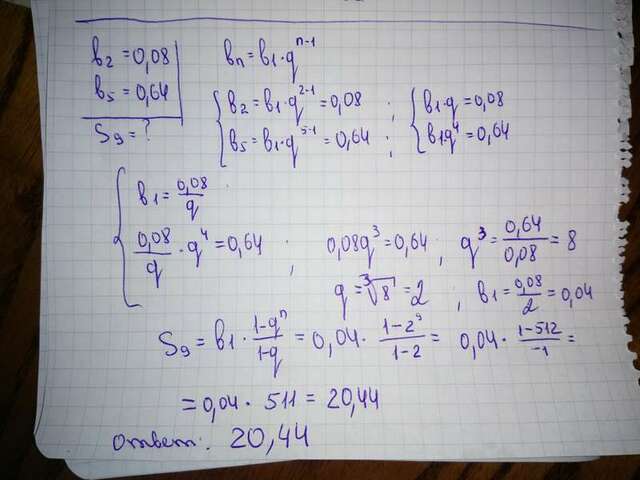 b₂ = 0,08 bₙ = b₁ · qⁿ⁻¹
b₅ = 0,64
S₉ = ?
{ b₂ = b₁ · q²⁻¹ = 0,08 ; { b₁ · q = 0,08
b₅ = b₁ · q⁵⁻¹ = 0,64 ; b₁q⁴ = 0,64
{ b₁ = 0,08/q
0,08/q · q⁴ = 0,64 ; 0,08q³ = 0,64 ; q³ = 0,64/0,08 = 8
q = ³√8 = 2 ; b₁ = 0,08/2 = 0,04
S₉ = b₁ · 1-qⁿ/1-q = 0,04 · 1-2⁹/1-2 = 0,04 · 1-512/-1 =
= 0,04 · 511 = 20,44
ответ: 20,44